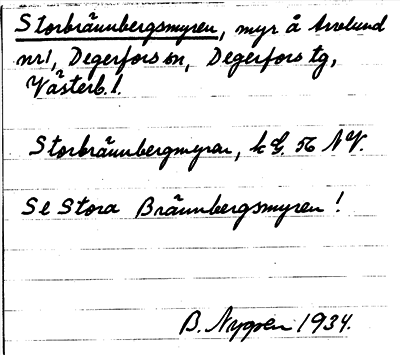 Storbrännbergsmyren, myr å Avalund
nr1, Degerfors sn, Degerfors tg,
Västerb. l.
Storbrännbergmyran, k G. 56 NV.
Se Stora Brännbergsmyren!
B. Nygren 1934.